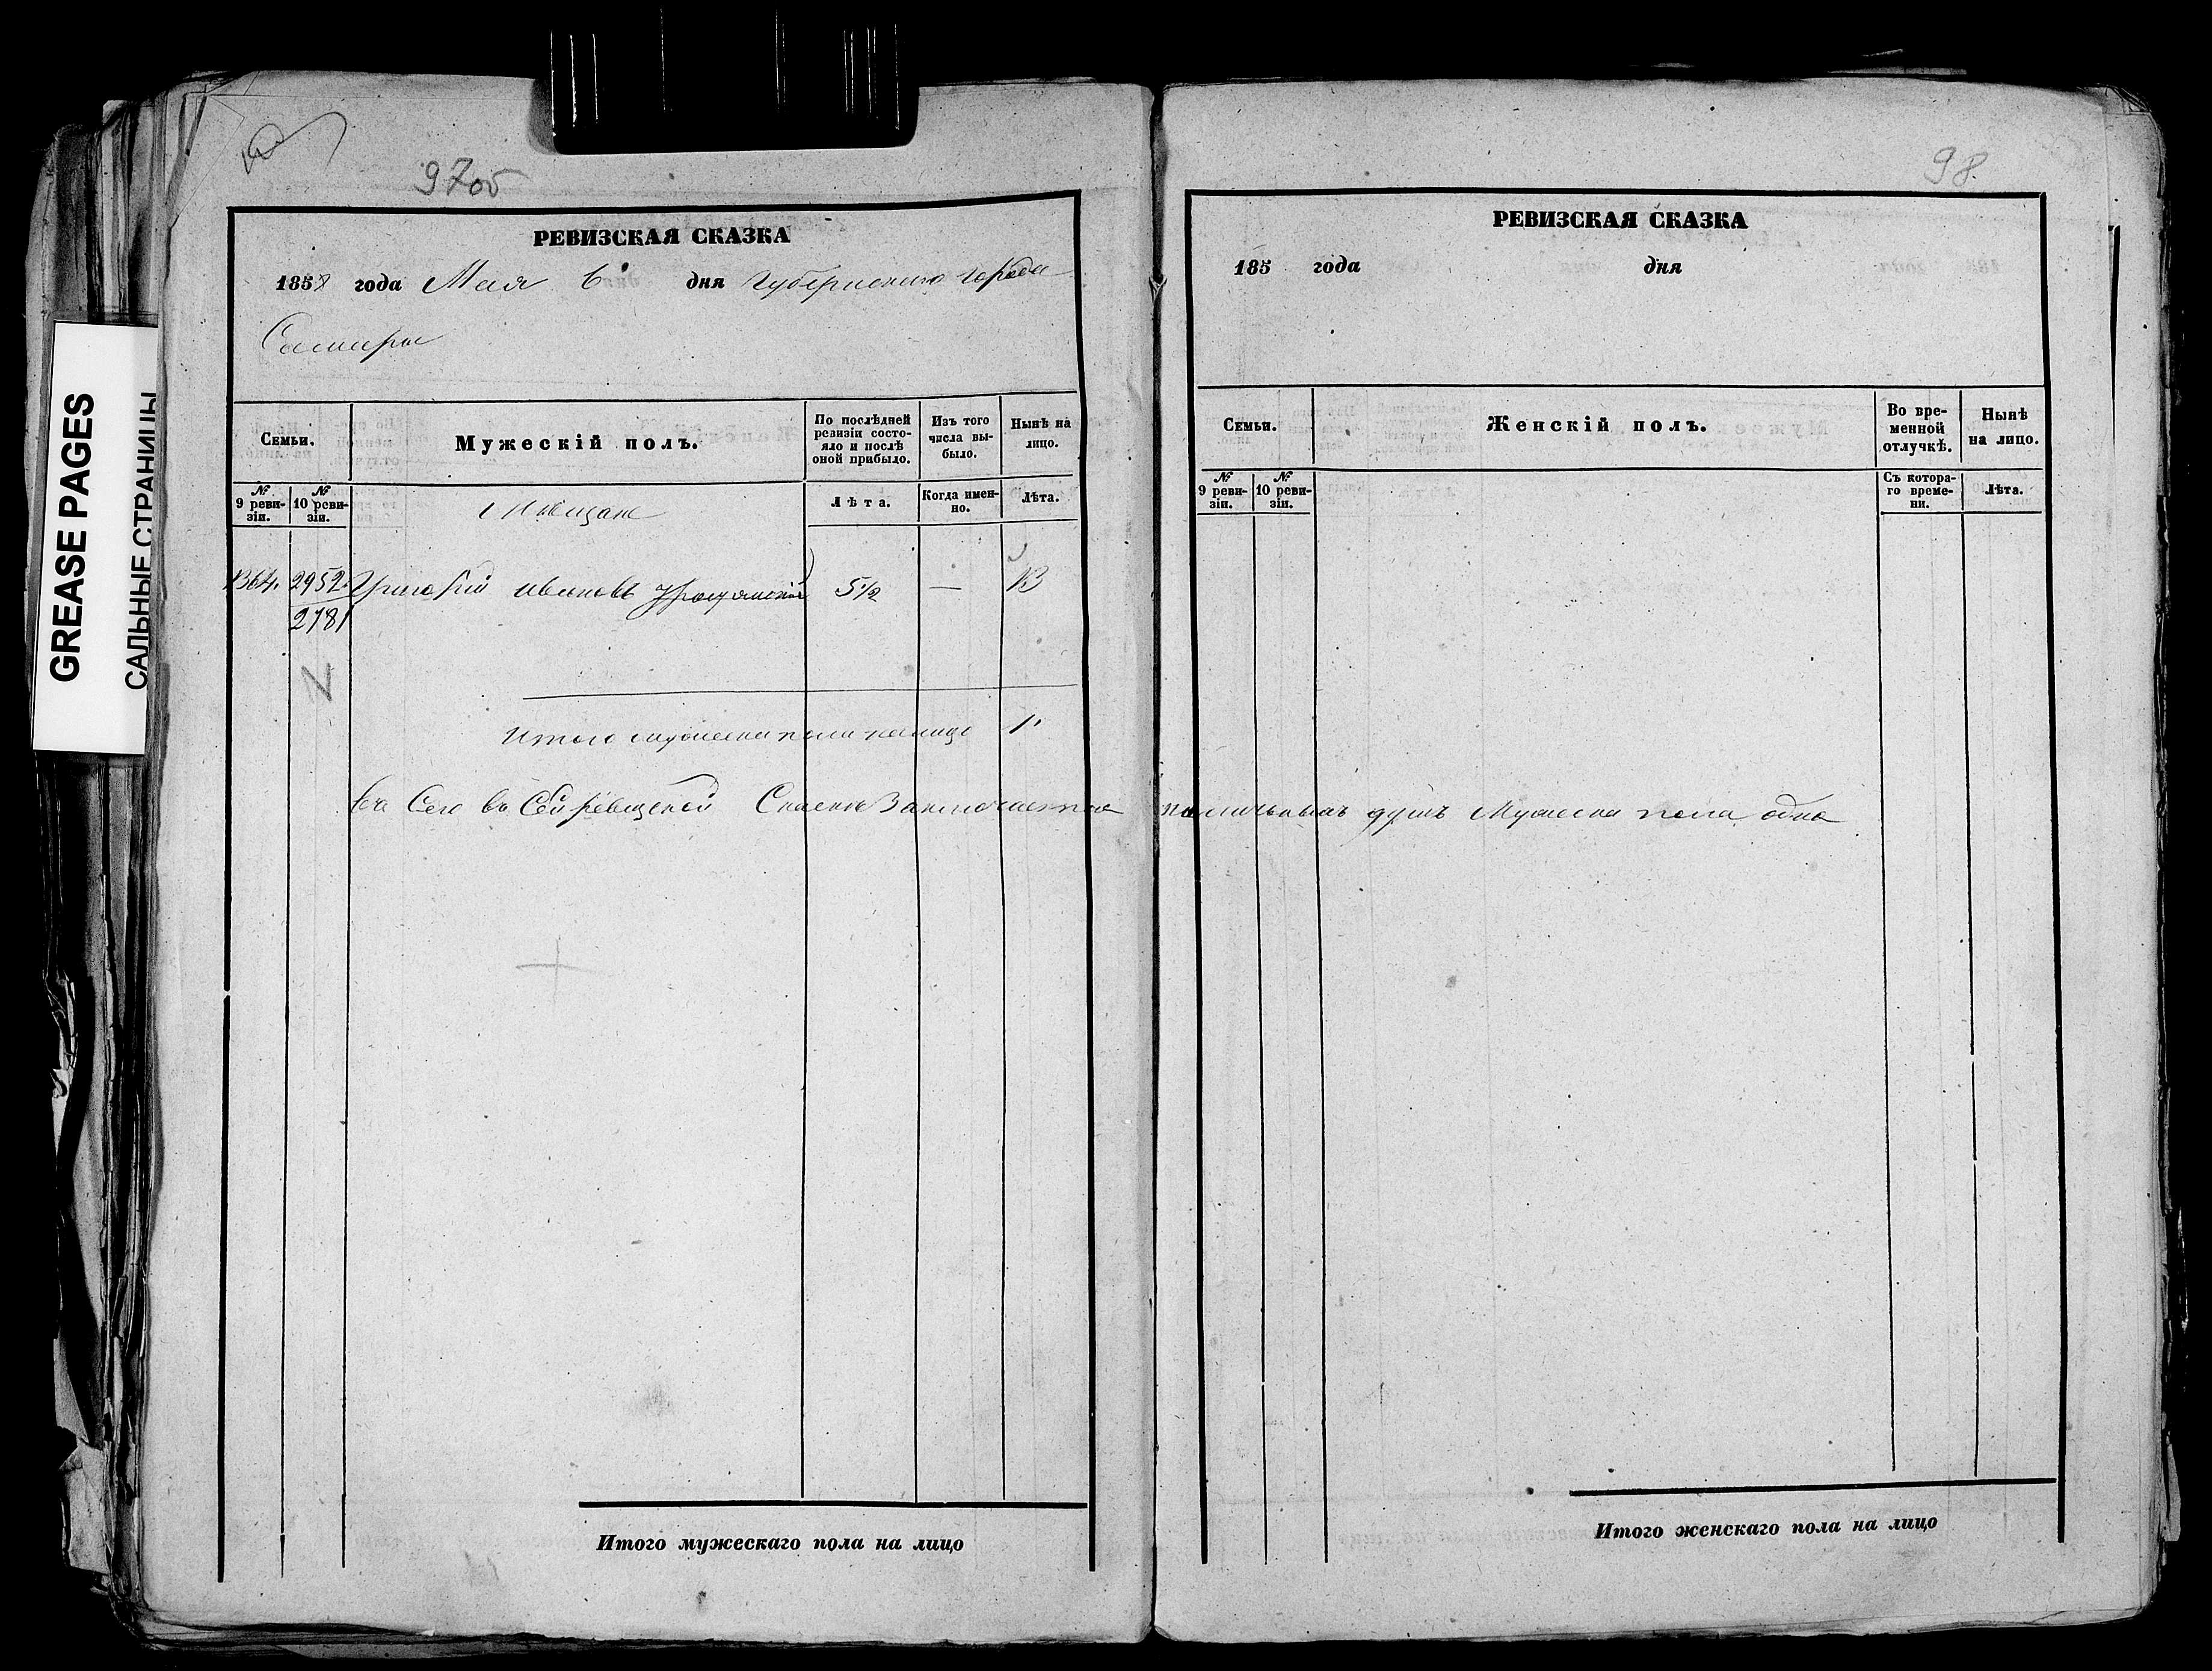 GREASE PAGES
САЛЬНЫЕ СТРАНИЦЫ
97об
РЕВИЗСКАЯ СКАЗКА
1858 года Мая 6 дня Губернскаго города
Самары
Семьи.
Мужескій полъ.
По послѣдней ревизіи состояло и послѣ оной прибыло.
Изъ того числа выбыло.
Нынѣ на лицо.
№ 9 ревизіи.
№ 10 ревизіи.
Лѣта.
Когда именно.
Лѣта.
Мѣщане
1364. 2952. Григорій Ивановъ 5½ — 13
2781
N
Итого мужеска пола налицо 1
98
РЕВИЗСКАЯ СКАЗКА
185 года дня
Семьи.
Женскій полъ.
Во временной отлучкѣ.
Нынѣ на лицо.
№ 9 ревизіи.
№ 10 ревизіи.
Съ котораго времени.
Лѣта.
Всего въ Сей ревизской Сказкѣ Заключается наличныхъ душъ Мужеска пола одна
Итого мужескаго пола на лицо
Итого женскаго пола на лицо